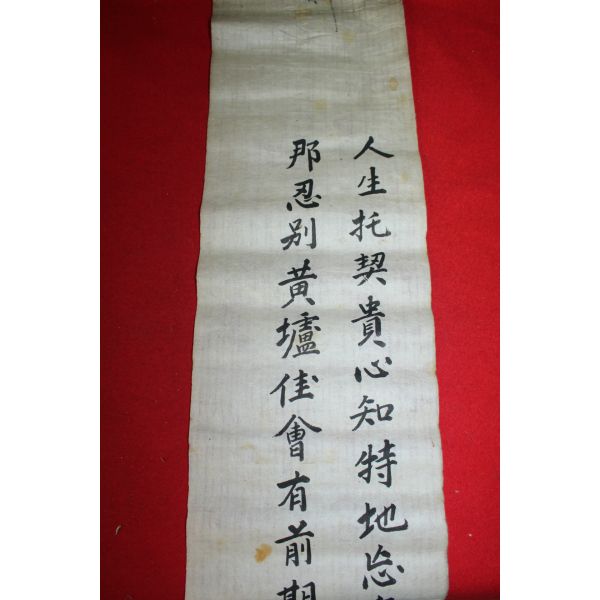 人生托契貴心知特地忘
那忍别黃壚佳會有前期